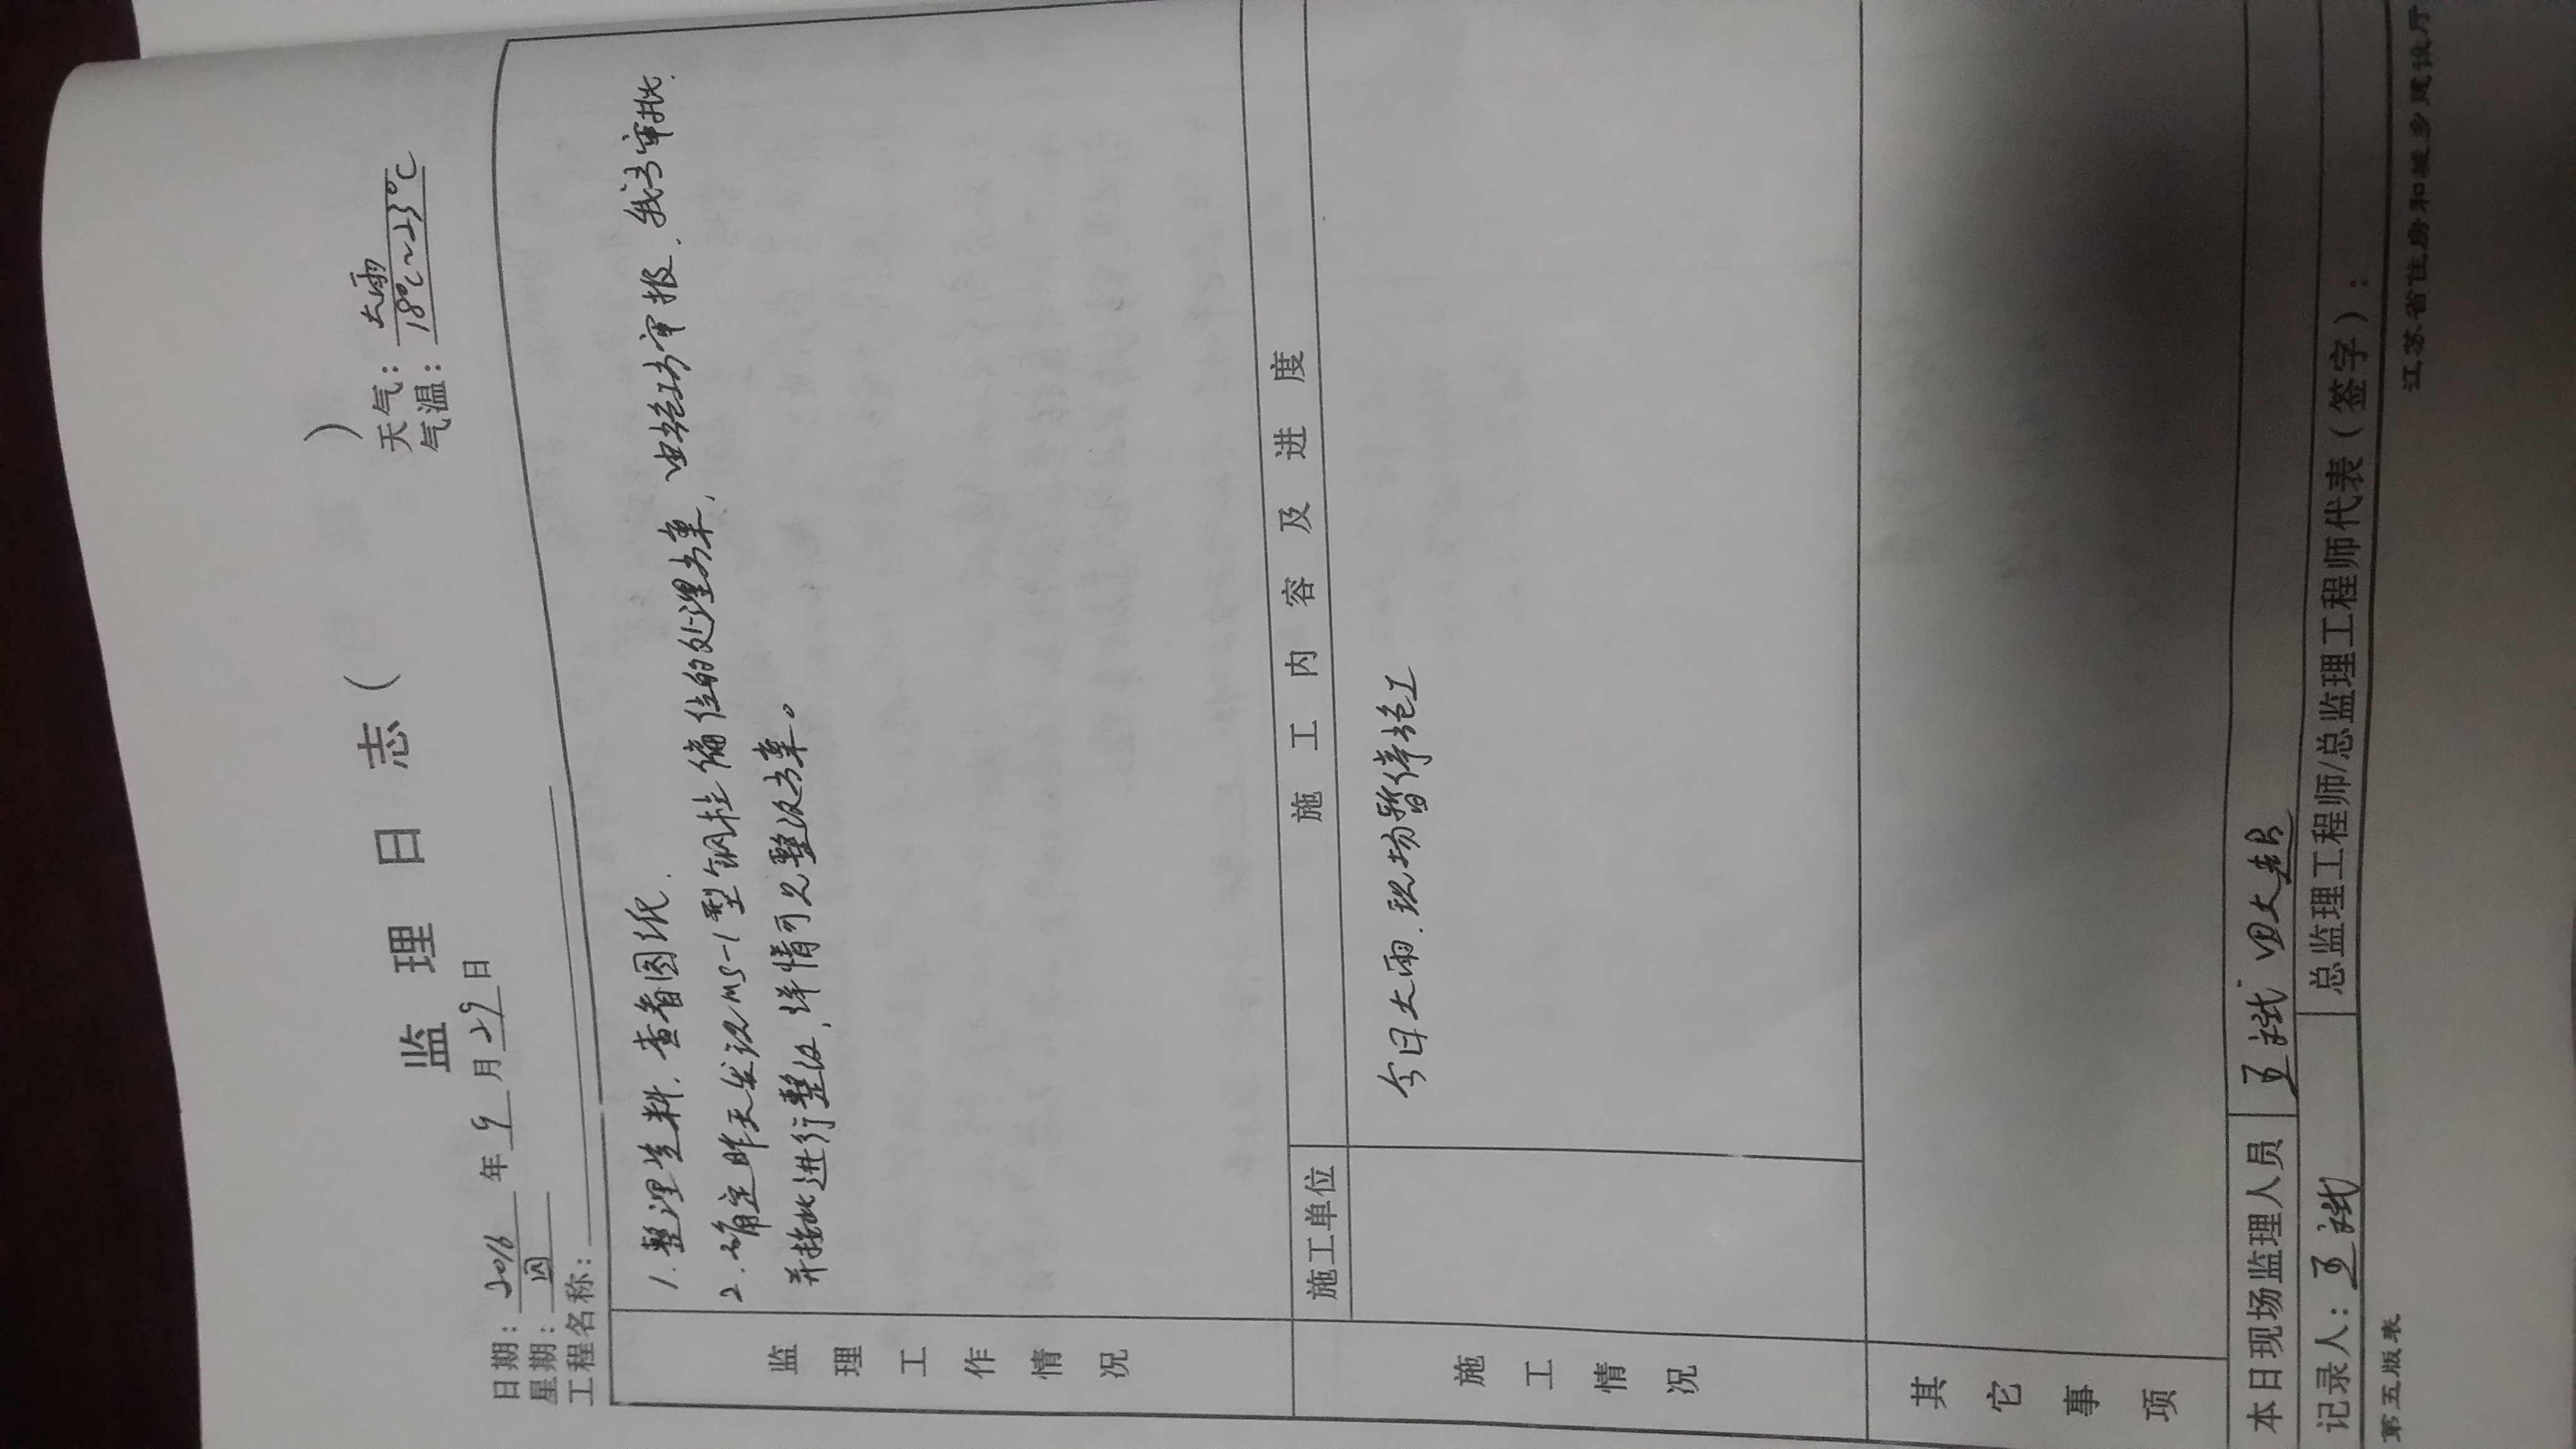 监理日志（ ）
日期：2016年9月29日 天气：大雨
星期：四 气温：18℃~23℃
工程名称：
监理工作情况
1.整理资料，查看图纸.
2.确定昨天发现MS-1型钢柱偏位的处理方案，由施工方审报，我方审批.
并按此进行整改，详情可见整改方案。
施工情况
施工单位 施工内容及进度
今日大雨，现场暂停施工
其它事项
本日现场监理人员
记录人： 总监理工程师/总监理工程师代表（签字）：
第五版表 江苏省住房和城乡建设厅